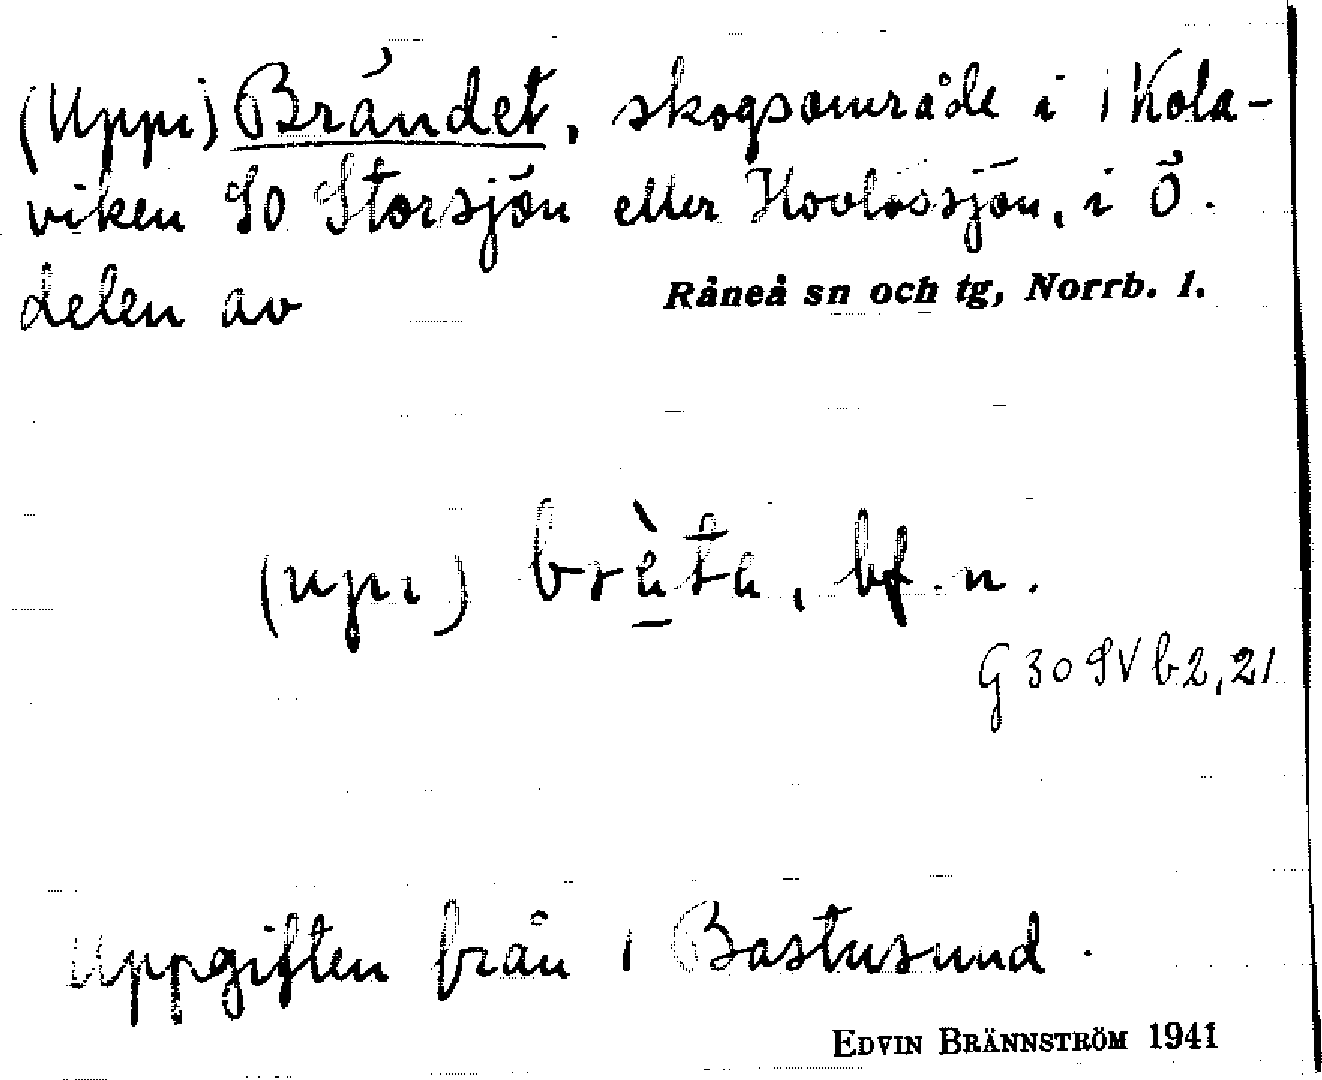 (Uppi) Brändet, skogsområde i 1 Kola-
viken SO Storsjön eller Hovlössjön, i Ö.
delen av Råneå sn och tg, Norrb. l.
(upi) , bf. n.
G 30 SV b2,21
Uppgiften från 1 Bastusund.
EDVIN BRÄNNSTRÖM 1941